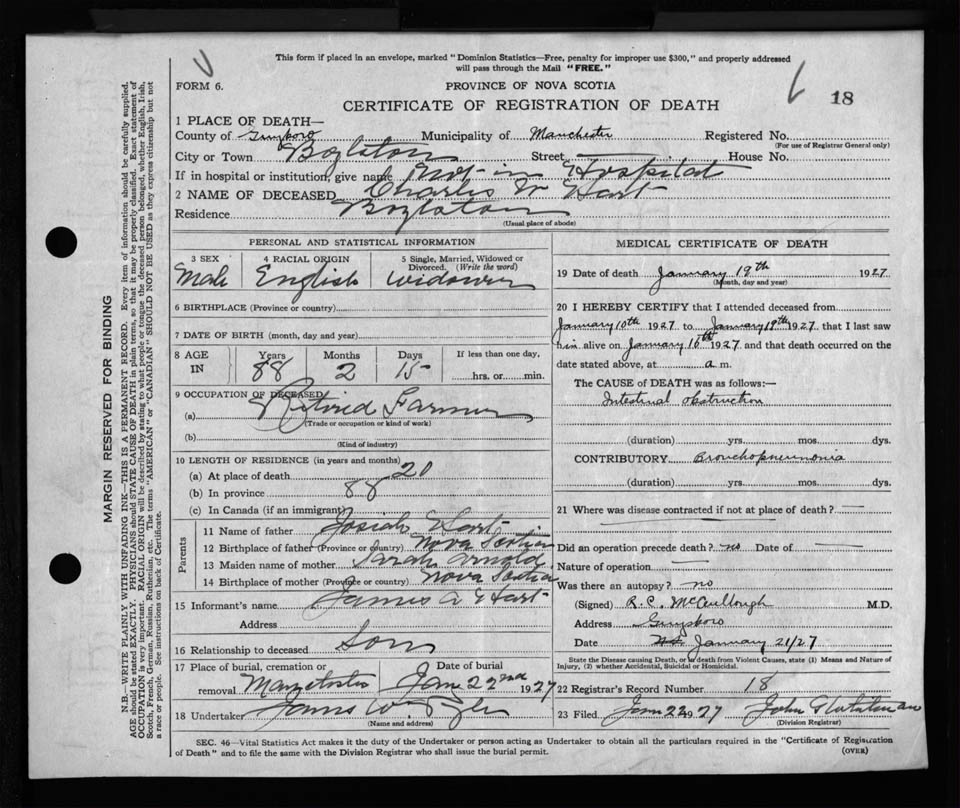 This form if placed in an envelope, marked "Dominion Statistics—Free, penalty for improper use $300," and properly addressed
will pass through the Mail "FREE."
FORM 6.
PROVINCE OF NOVA SCOTIA
CERTIFICATE OF REGISTRATION OF DEATH
18
1 PLACE OF DEATH—
County of Guysboro Municipality of Manchester Registered No.
(For use of Registrar General only)
City or Town Boylston Street — House No.
If in hospital or institution, give name Not in Hospital
2 NAME OF DECEASED Charles W Hart
Residence Boylston
(Usual place of abode)
PERSONAL AND STATISTICAL INFORMATION
3 SEX Male
4 RACIAL ORIGIN English
5 Single, Married, Widowed or Divorced. (Write the word) widower
6 BIRTHPLACE (Province or country)
7 DATE OF BIRTH (month, day and year)
8 AGE IN Years 88 Months 2 Days 15 If less than one day, hrs. or min.
9 OCCUPATION OF DECEASED
(a) Retired Farmer
(Trade or occupation or kind of work)
(b)
(Kind of industry)
10 LENGTH OF RESIDENCE (in years and months)
(a) At place of death 20
(b) In province 88
(c) In Canada (if an immigrant)
Parents
11 Name of father Josiah Hart
12 Birthplace of father (Province or country) Nova Scotia
13 Maiden name of mother Sarah Arnold
14 Birthplace of mother (Province or country) Nova Scotia
15 Informant's name James A Hart
Address
16 Relationship to deceased Son
17 Place of burial, cremation or removal Manchester Date of burial Jan 22nd 1927
18 Undertaker James W.
(Name and address)
MEDICAL CERTIFICATE OF DEATH
19 Date of death January 19th 1927
(Month, day and year)
20 I HEREBY CERTIFY that I attended deceased from
January 10th 1927 to January 19th 1927 that I last saw
him alive on January 16th 1927 and that death occurred on the
date stated above, at a m.
The CAUSE of DEATH was as follows:—
Intestinal obstruction
(duration) yrs. mos. dys.
CONTRIBUTORY Bronchopneumonia
(duration) yrs. mos. dys.
21 Where was disease contracted if not at place of death? —
Did an operation precede death? no Date of —
Nature of operation —
Was there an autopsy? no
(Signed) R.C. McCullough M.D.
Address Guysboro
Date January 21/27
State the Disease causing Death, or in death from Violent Causes, state (1) Means and Nature of
Injury, (2) whether Accidental, Suicidal or Homicidal.
22 Registrar's Record Number 18
23 Filed Jan 22 1927 John
(Division Registrar)
SEC. 46—Vital Statistics Act makes it the duty of the Undertaker or person acting as Undertaker to obtain all the particulars required in the "Certificate of Registration
of Death" and to file the same with the Division Registrar who shall issue the burial permit.
(OVER)
MARGIN RESERVED FOR BINDING
N.B.—WRITE PLAINLY WITH UNFADING INK—THIS IS A PERMANENT RECORD. Every item of information should be carefully supplied.
AGE should be stated EXACTLY. PHYSICIANS should STATE CAUSE OF DEATH in plain terms, so that it may be properly classified. Exact statement of
OCCUPATION is very important. RACIAL ORIGIN will be described by stating to what people or tongue the deceased person belonged, whether English, Irish,
Scotch, French, German, Russian, Ruthenian, etc. The terms "AMERICAN" or "CANADIAN" SHOULD NOT BE USED as they express citizenship but not
a race or people. See instructions on back of Certificate.